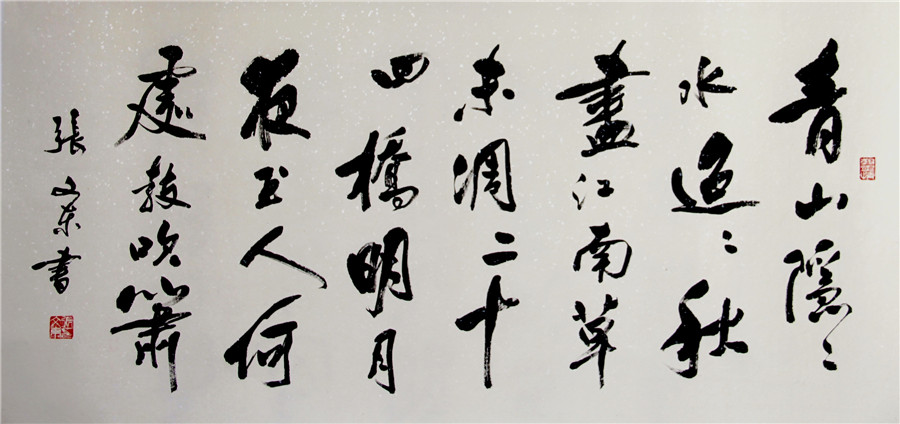 青山隱〻
水迢〻秋
盡江南草
未凋二十
四橋明月
夜玉人何
處教吹簫
張文書